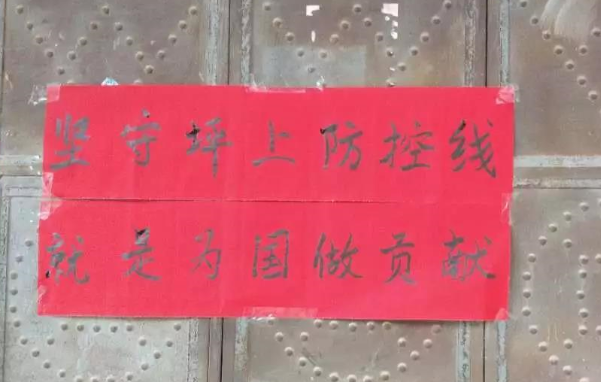 坚守坪上防控线
就是为国做贡献